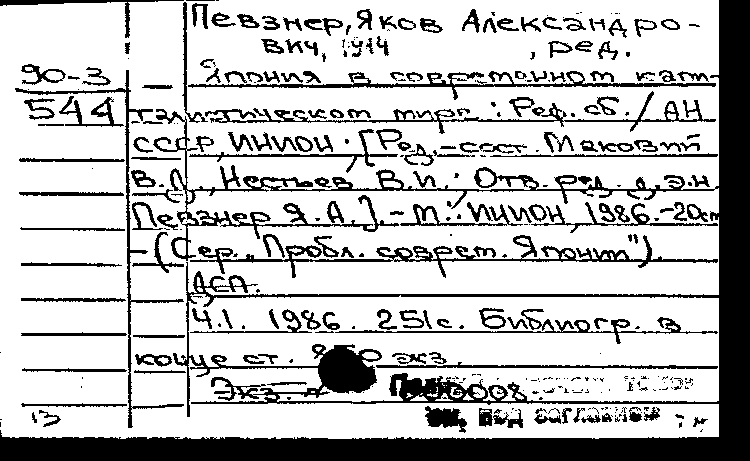 Певзнер, Яков Александро-
вич, 1914 , ред.
90-3 — Япония в современном капи-
544 талистическом мире : Реф. сб. / АН
СССР, ИНИОН ; [Ред.-сост. Маковий
В.Л., Нестьев В.И.; Отв. ред. д.э.н.
Певзнер Я.А.]. - М.: ИНИОН, 1986. - 20см
- (Сер. "Пробл. соврем. Японии").
ДСП.
Ч.1. 1986. 251с. Библиогр. в
конце ст. экз.
Экз. № 000008.
13 см. под заглавием